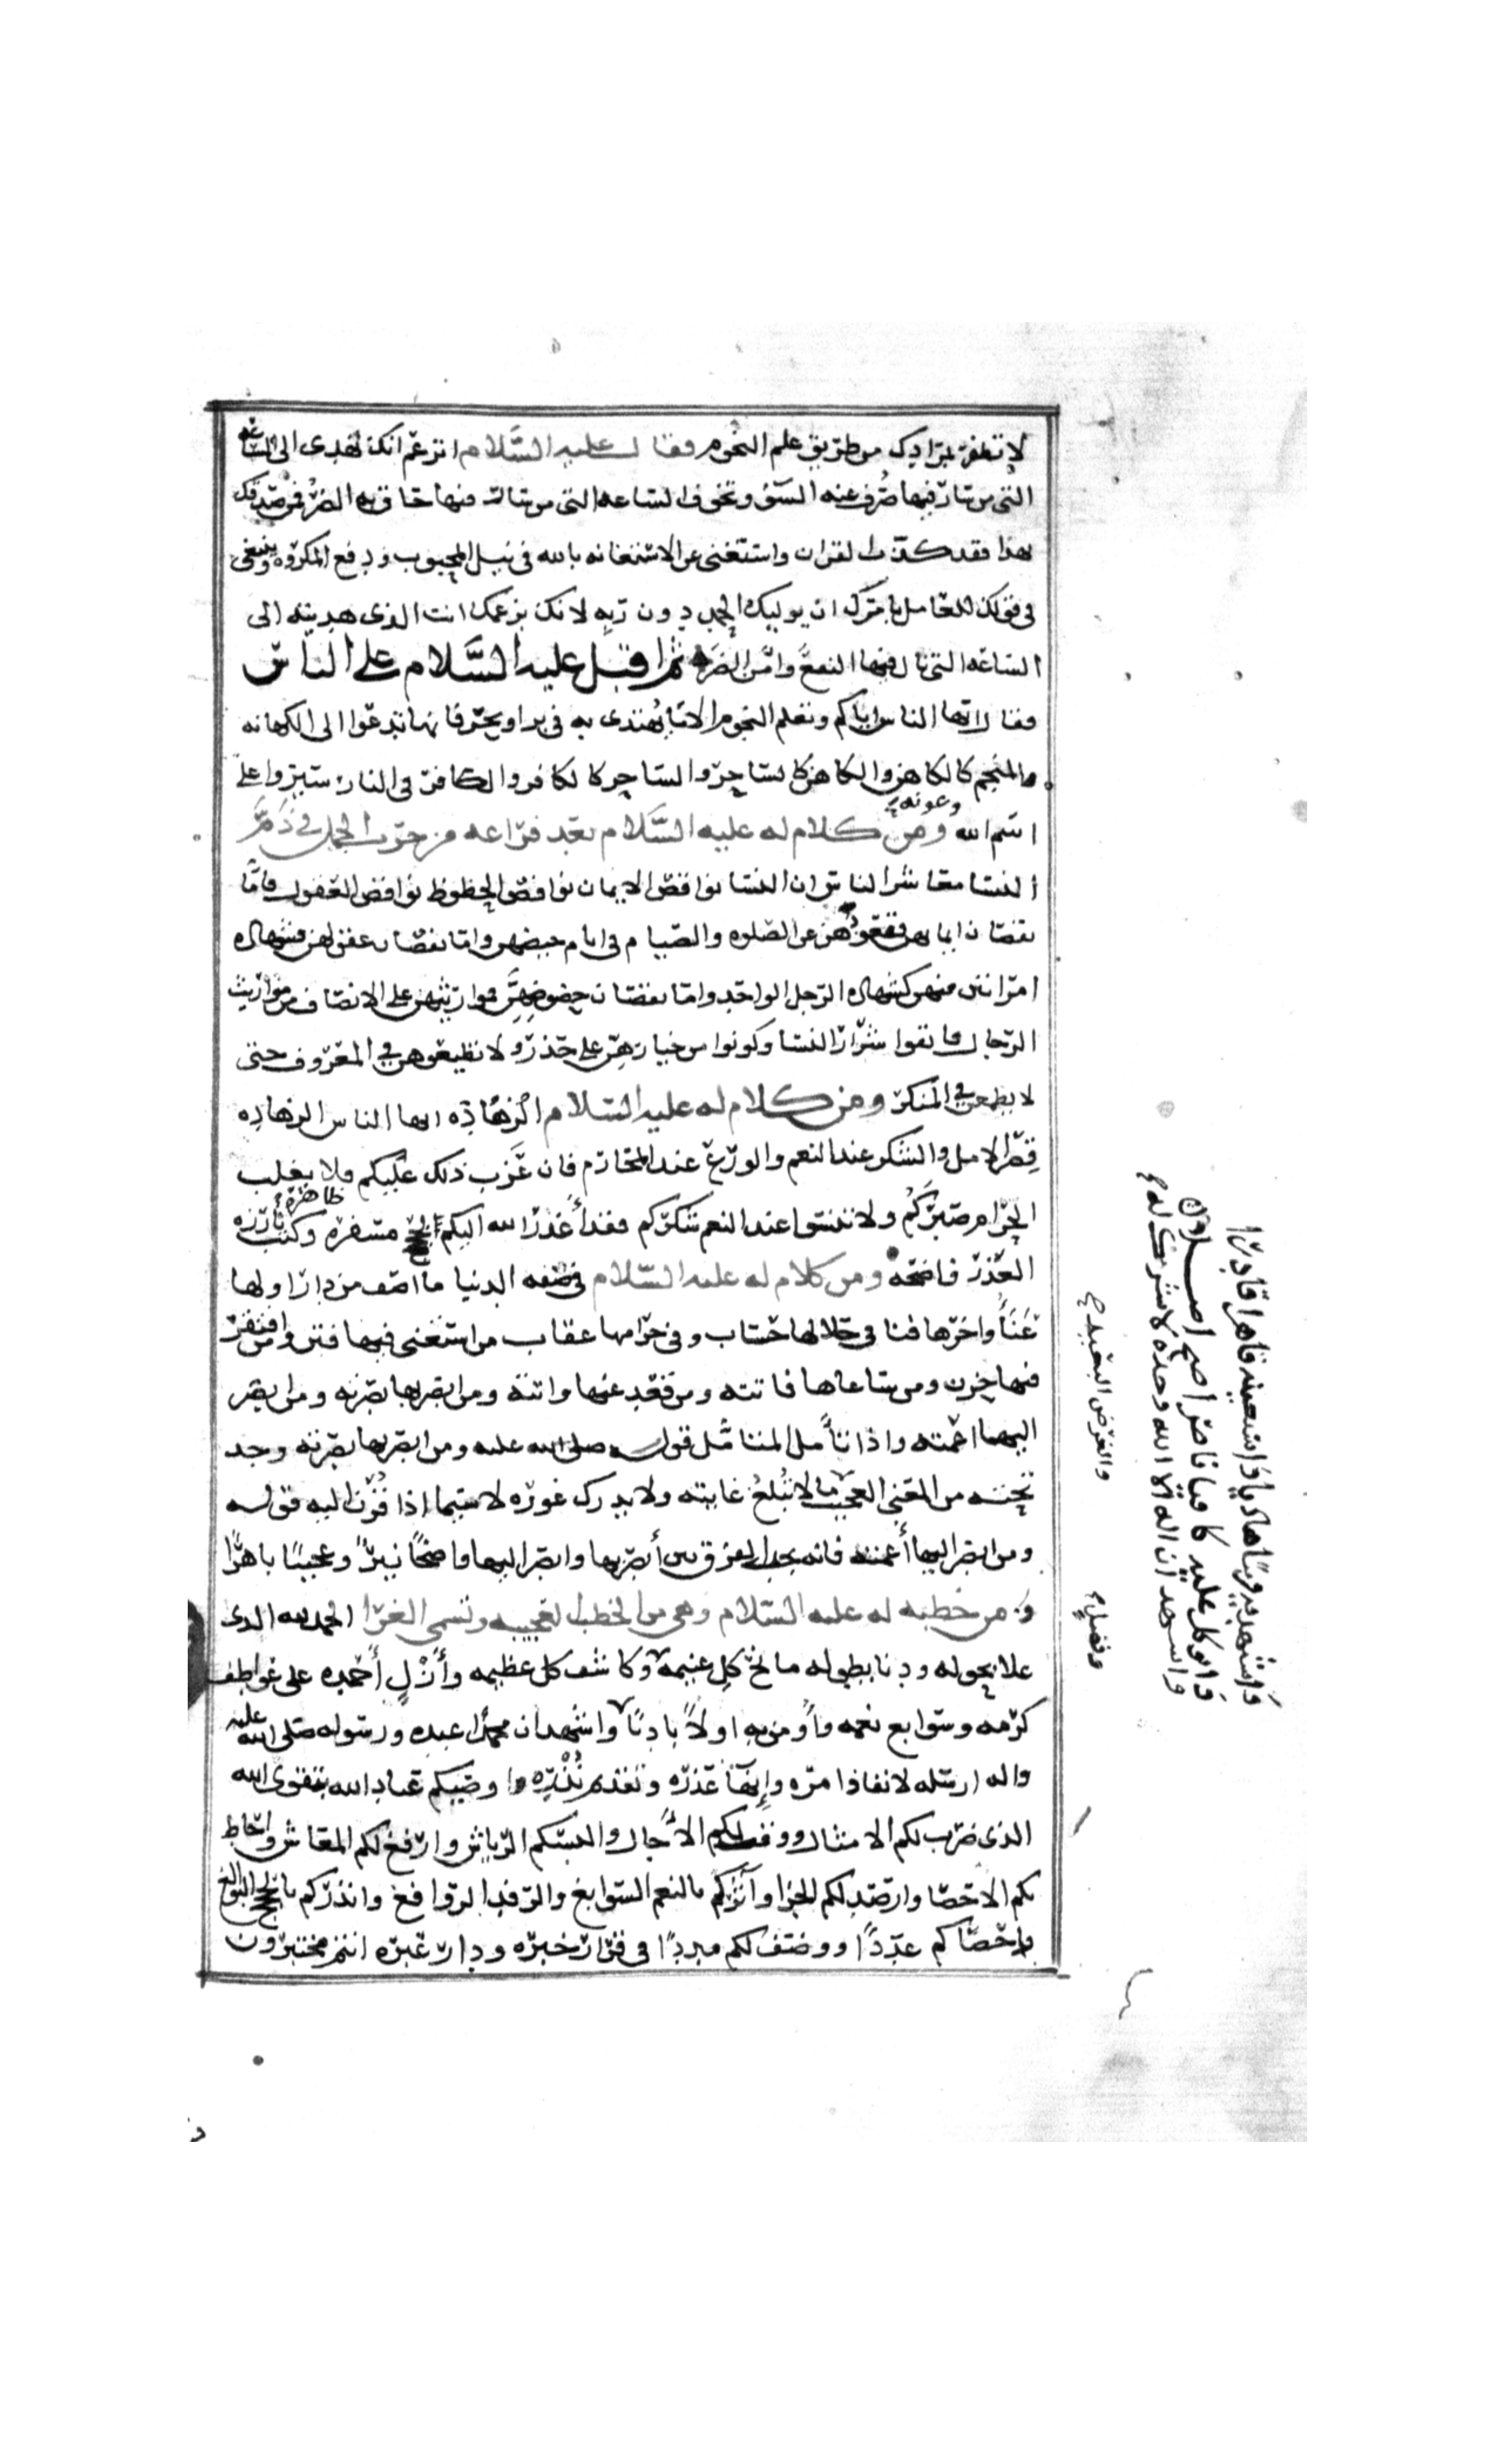 لا تظفر بمرادك من طريق علم النجوم فقال عليه السلام اتزعم انك تهدى الى الساعه
التى من سار فيها صرف عنه السؤ وتخوف الساعه التى من سار فيها حاق به الضر فمن صدقك
بهذا فقد كذب القران واستغنى عن الاستعانه بالله فى نيل المحبوب ودفع المكروه وينبغى
فى قولك للعامل بامرك ان يوليك الحمد دون ربه لانك بزعمك انت الذى هديته الى
الساعه التى نال فيها النفع وامن الضر ثم اقبل عليه السلام على الناس
فقال ايها الناس اياكم وتعلم النجوم الا ما يهتدى به فى بر او بحر فانها تدعوا الى الكهانه
والمنجم كالكاهن والكاهن كالساحر والساحر كالكافر والكافر فى النار سيروا على
اسم الله وعونه ومن كلام له عليه السلام بعد فراغه من حرب الجمل فى ذم
النسا معاشر الناس ان النسا نواقص الايمان نواقص الحظوظ نواقص العقول فاما
نقصان ايمانهن فقعودهن عن الصلوه والصيام فى ايام حيضهن واما نقصان عقولهن فشهاده
امراتين منهن كشهاده الرجل الواحد واما نقصان حضوضهن فمواريثهن على الانصاف من مواريث
الرجال فاتقوا شرار النسا وكونوا من خيارهن على حذر ولا تطيعوهن فى المعروف حتى
لا يطمعن فى المنكر ومن كلام له عليه السلام الزهاده ايها الناس الزهاده
قصر الامل والشكر عند النعم والورع عند المحارم فان عزب ذلك عليكم فلا يغلب
الحرام صبركم ولا تنسوا عند النعم شكركم فقد أعذر الله اليكم بحجج مسفره ظاهره وكتب بارزه
العذر واضحه ومن كلام له عليه السلام فى صفه الدنيا ما اصف من دار اولها
عنأ واخرها فنا فى حلالها حساب وفى حرامها عقاب من استغنى فيها فتن ومن افتقر
فيها حزن ومن ساعاها فاتته ومن قعد عنها واتته ومن ابصر بها بصرته ومن ابصر
اليها اعمته واذا تأمل المتامل قوله صلى الله عليه ومن ابصر بها بصرته وجد
تحته من المعنى العجيب ما لا تُبلغ غايته ولا يدرك غوره لا سيما اذا قُرن اليه قوله
ومن ابصر اليها أعمته فانه يجد الفرق بين أبصر بها وابصر اليها واضحًا نيرًا وعجيبًا باهرًا
ومن خطبه له عليه السلام وهى من الخطب العجيبه وتسمى الغرا الحمد لله الذى
علا بحوله ودنا بطوله مانح كل غنيمه وكاشف كل عظيمه وأزل أحمده على عواطف
كرمه وسوابغ نعمه وأومن به اولًا باديًا واشهد ان محمدًا عبده ورسوله صلى الله عليه
واله ارسله لانفاذ امره وإنهأ عذره وتقديم نُذُره اوصيكم عباد الله بتقوى الله
الذى ضرب لكم الامثال ووقت لكم الأجال والبسكم الرياش وارفغ لكم المعاش واحاط
بكم الاحصا وارصد لكم الجزا وآثركم بالنعم السوابغ والرفد الروافغ وانذركم بالحجج البوالغ
واحصاكم عددًا ووضف لكم مددًا فى قرار خبره ودار عبره انتم مختبرون
واستهديه قريبًا هاديًا واستعينه قاهرا قادرًا
واتوكل عليه كافيا ناصرا صح اصل
واشهد ان لا اله الا الله وحده لا شريك له
والغرض البعيد
وفضل